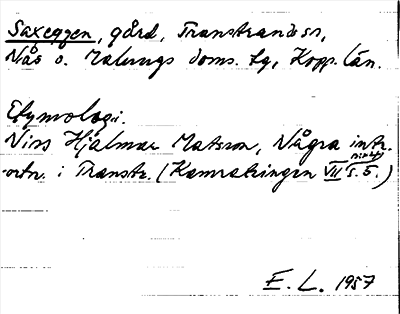 Saxeggen, gård, Transtrands sn,
Nås o. Malungs doms. tg, Kopp. län.
Etymologi.
Nins Hjalmar Matsson, Några intr.
ortn. i Transtr. (Kamratringen VII s. 5.)
E. L. 1957